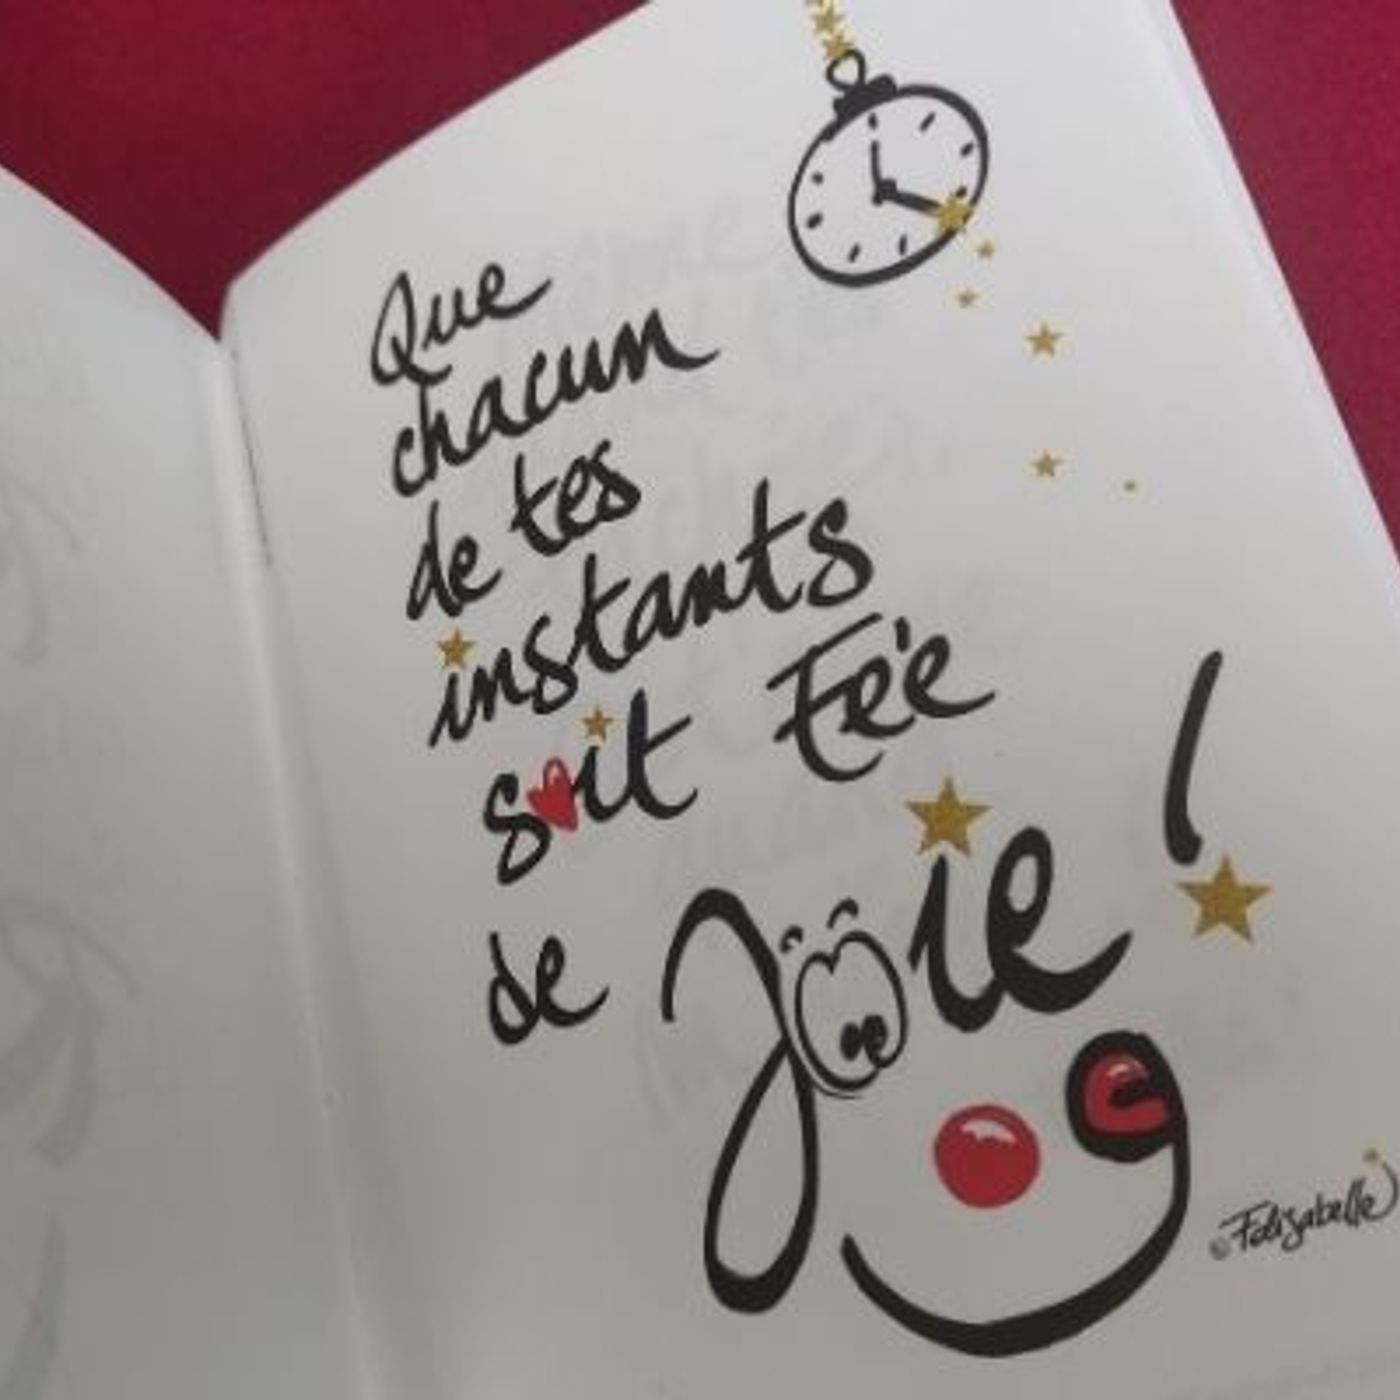 Que
chacun
de tes
instants
soit Fée
de Joie !
©Felizabelle